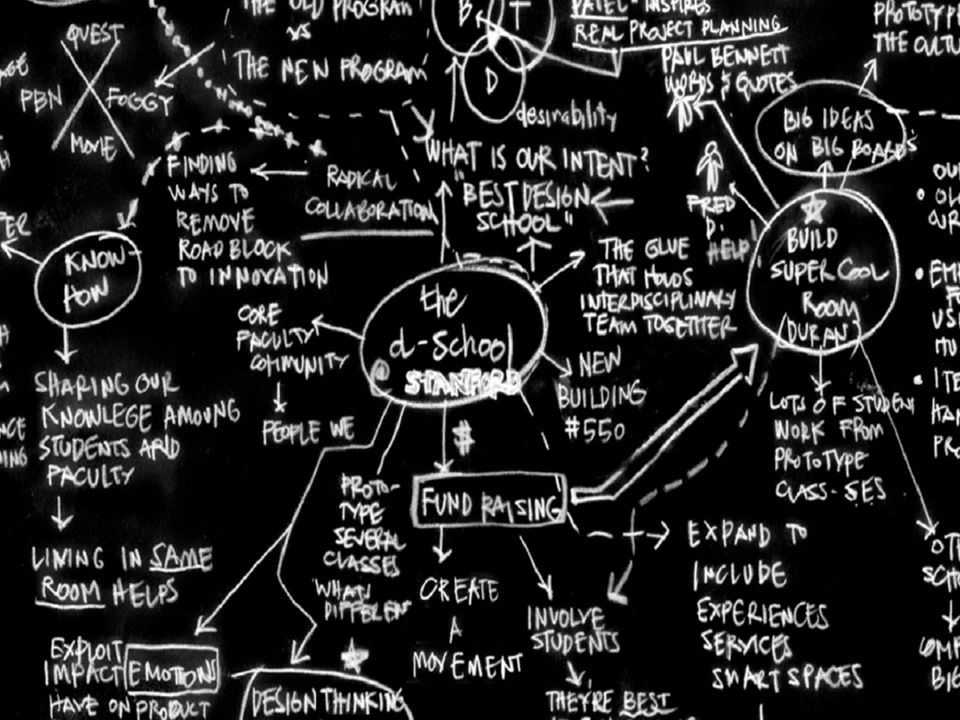 THE OLD PROGRAM
VS
THE NEW PROGRAM
QUEST
PBN
FOGGY
MOVIE
B
T
D
desirability
PATEL - INSPIRES
REAL PROJECT PLANNING
PAUL BENNETT
WORDS & QUOTES
BIG IDEAS
ON BIG BOARDS
FINDING
WAYS TO
REMOVE
ROADBLOCK
TO INNOVATION
RADICAL
COLLABORATION
WHAT IS OUR INTENT?
"BEST DESIGN
SCHOOL"
FRED
D.
HELP
BUILD
SUPER COOL
ROOM
KNOW-
HOW
THE GLUE
THAT HOLDS
INTERDISCIPLINARY
TEAM TOGETHER
the
d-school
STANFORD
CORE
FACULTY
COMMUNITY
PEOPLE WE
NEW
BUILDING
#550
SHARING OUR
KNOWLEGE AMOUNG
STUDENTS AND
FACULTY
LINING IN SAME
ROOM HELPS
LOTS OF STUDENT
WORK FROM
PROTOTYPE
CLASS-SES
$
FUND RAISING
PROTO-
TYPE
SEVERAL
CLASSES
WHAT
DIFFEREN
CREATE
A
MOVEMENT
INVOLVE
STUDENTS
THEY'RE BEST
EXPAND TO
INCLUDE
EXPERIENCES
SERVICES
SMART SPACES
EXPLOIT
IMPACT EMOTIONS
HAVE ON PRODUCT
DESIGN THINKING